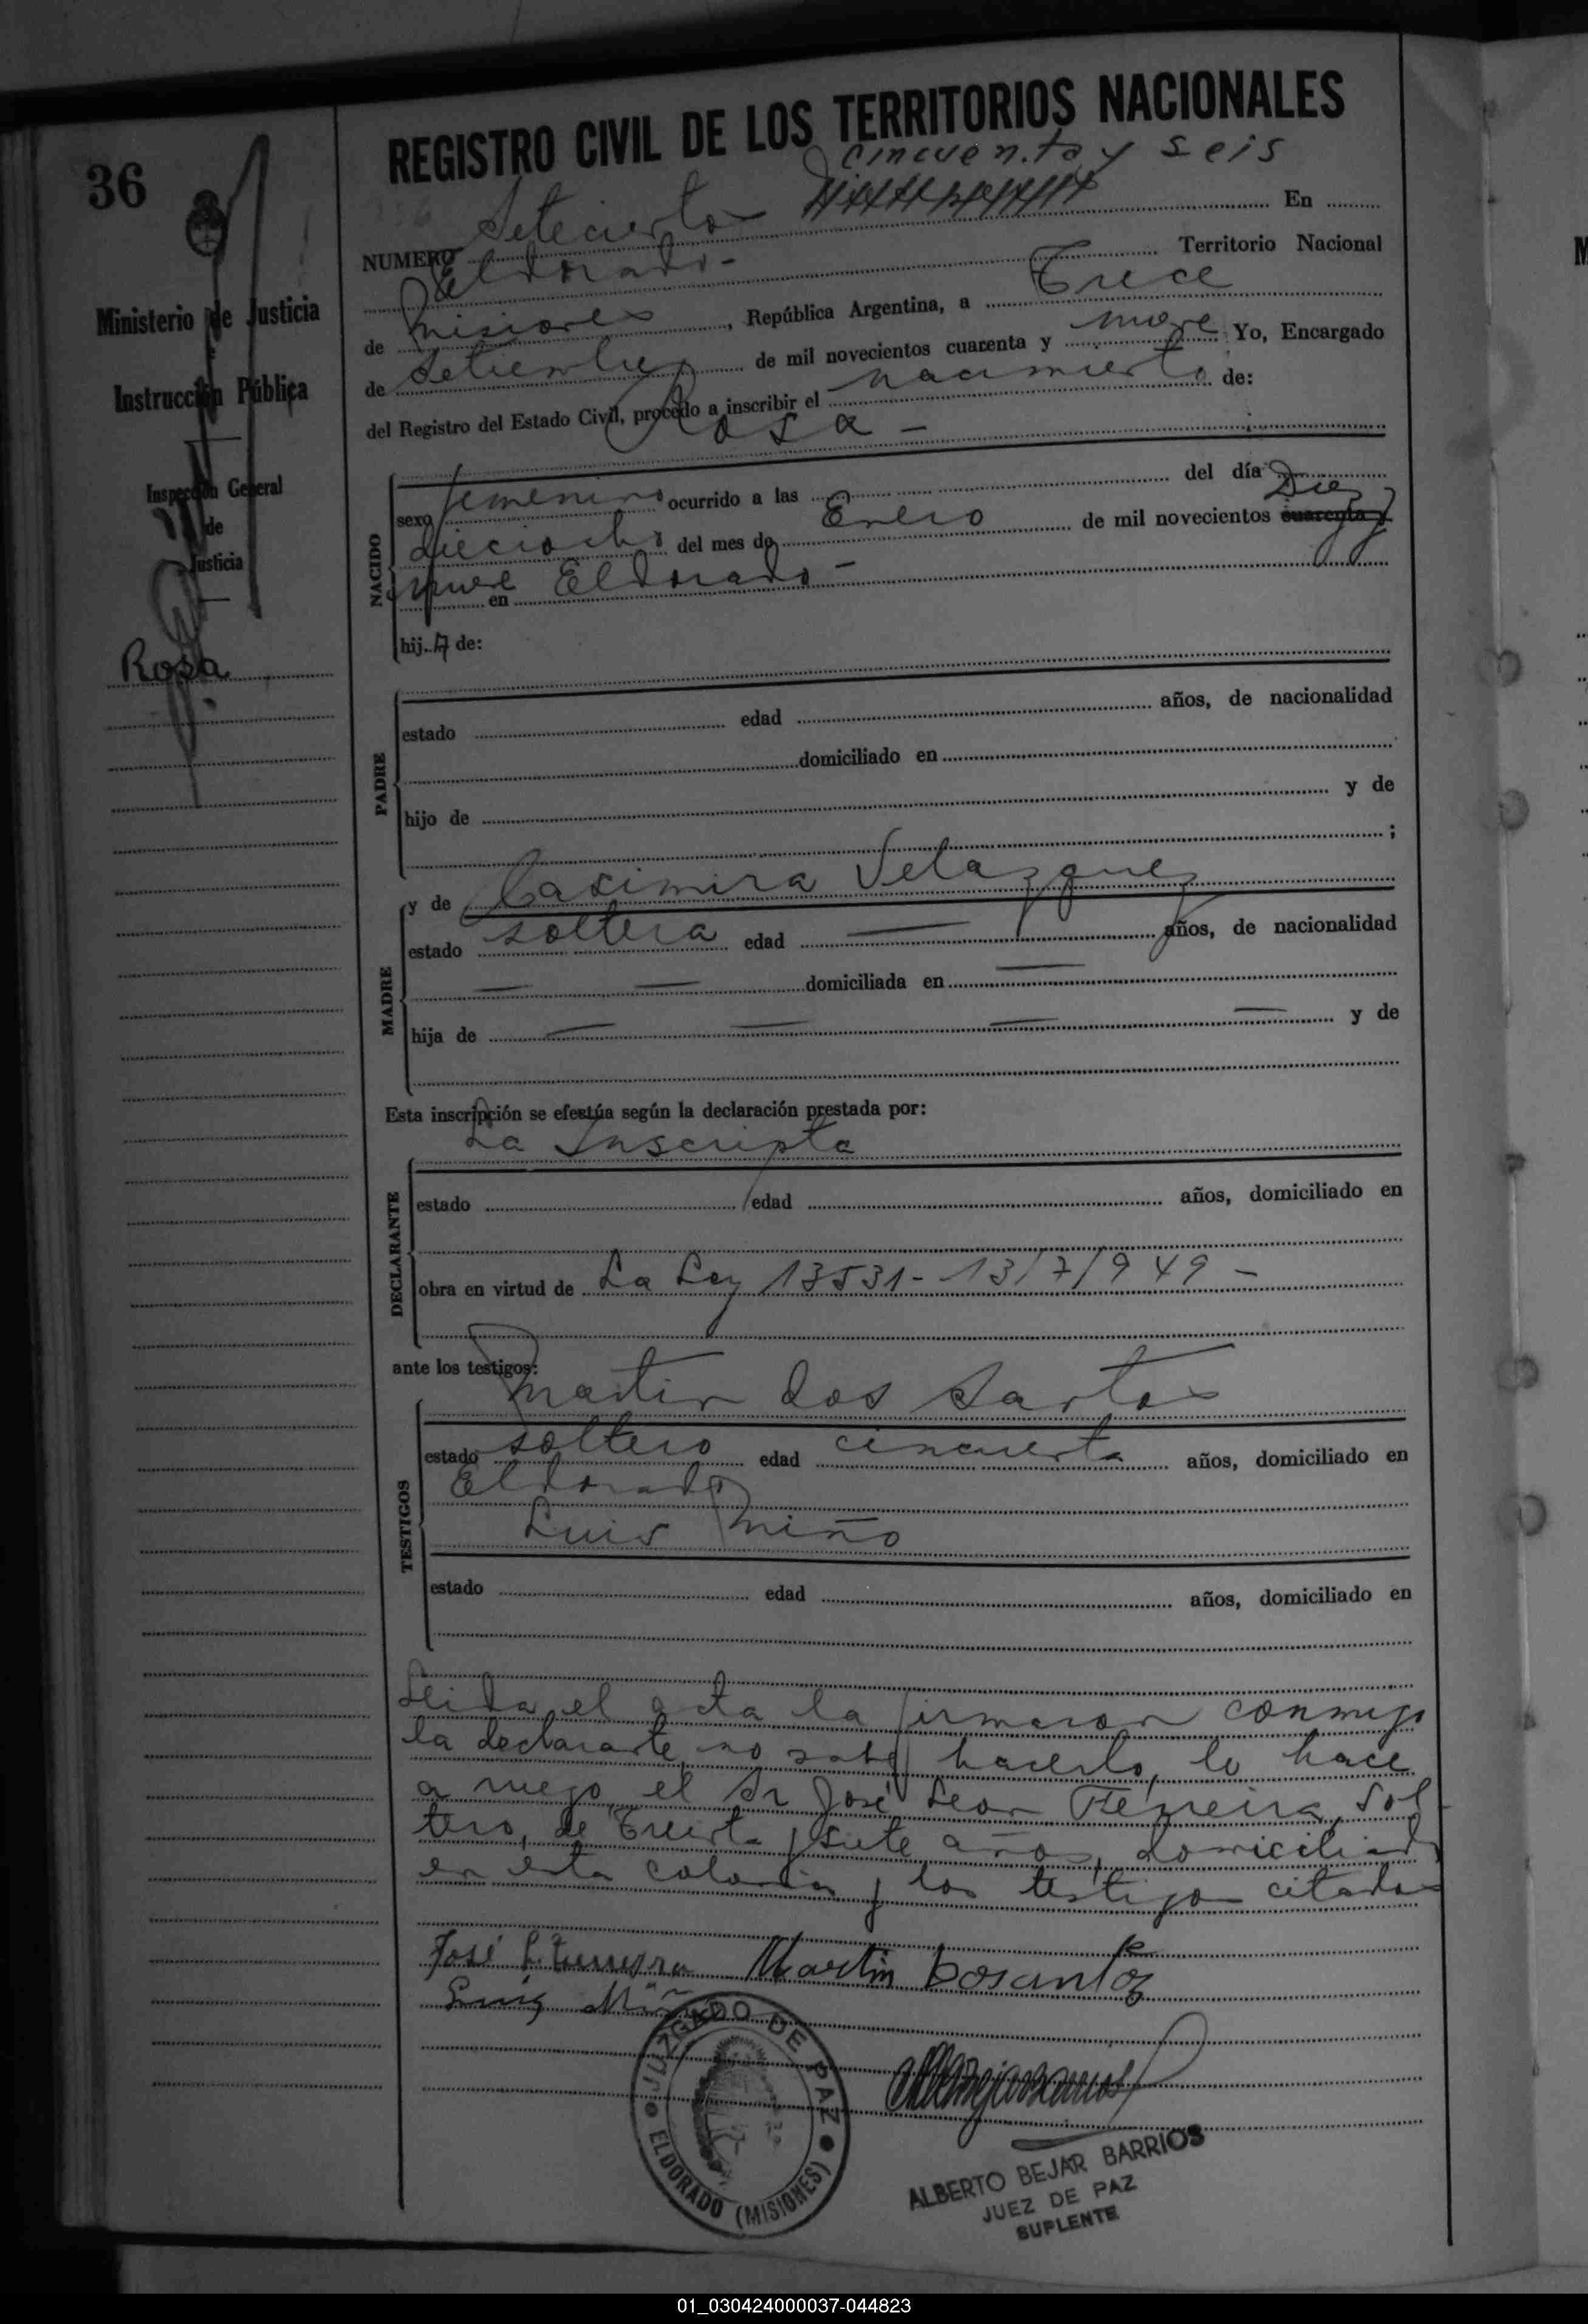 REGISTRO CIVIL DE LOS TERRITORIOS NACIONALES
36
cincuenta y seis
NUMERO Setecientos En
Eldorado - Territorio Nacional
de Misiones, República Argentina, a Trece
de Setiembre de mil novecientos cuarenta y nueve Yo, Encargado
del Registro del Estado Civil, procedo a inscribir el nacimiento de:
Rosa -
Ministerio de Justicia
Instrucción Pública
Inspección General
de
Justicia
Rosa
NACIDO
sexo femenino ocurrido a las del día
dieciocho del mes de Enero de mil novecientos cuarenta y Diez y
nueve en Eldorado -
hij.a de:
PADRE
estado edad años, de nacionalidad
domiciliado en
hijo de y de
;
MADRE
y de Casimira Velazquez
estado soltera edad — años, de nacionalidad
— — domiciliada en —
hija de — — — — y de
Esta inscripción se efectúa según la declaración prestada por:
La Inscripta
DECLARANTE
estado edad años, domiciliado en
obra en virtud de La Ley 13531- 13/7/949 -
ante los testigos:
Martin dos Santos
TESTIGOS
estado soltero edad cincuenta años, domiciliado en
Eldorado
Luis Miño
estado edad años, domiciliado en
Leida el acta la firmaron conmigo
la declarante no sabe hacerlo, lo hace
a ruego el Sr José Leon Ferreira, sol
tero, de Treinta y siete años, domiciliado
en esta colonia y los testigos citados
José L. Ferreira Martin Dosantos
Luis Miño
JUZGADO DE PAZ
ELDORADO (MISIONES)
ALBERTO BEJAR BARRIOS
JUEZ DE PAZ
SUPLENTE
01_030424000037-044823